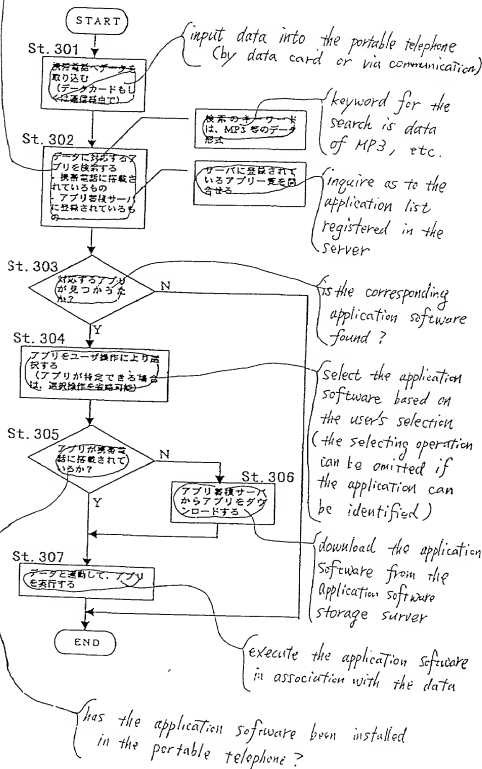 START
St. 301
携帯電話へデータを
取り込む
(データカードもし
くは通信経由で)
input data into the portable telephone
(by data card or via communication)
St. 302
データに対応するアプ
リを検索する
・携帯電話に搭載さ
れているもの
・アプリ蓄積サーバ
に登録されているも
の
検索のキーワード
は、MP3 等のデータ
形式
keyword for the
search is data
of MP3, etc.
サーバに登録されて
いるアプリ一覧を問
合せる
inquire as to the
application list
registered in the
server
St. 303
対応するアプリ
が見つかった
か?
N
Y
is the corresponding
application software
found ?
St. 304
アプリをユーザ操作により選
択する
(アプリが特定できる場合
は、選択操作を省略可能)
select the application
software based on
the user's selection
(the selecting operation
can be omitted if
the application can
be identified)
St. 305
アプリが携帯電
話に搭載されて
いるか?
N
Y
St. 306
アプリ蓄積サーバ
からアプリをダウ
ンロードする
download the application
software from the
application software
storage surver
St. 307
データと連動して、アプリ
を実行する
END
execute the application software
in association with the data
has the application software been installed
in the portable telephone ?